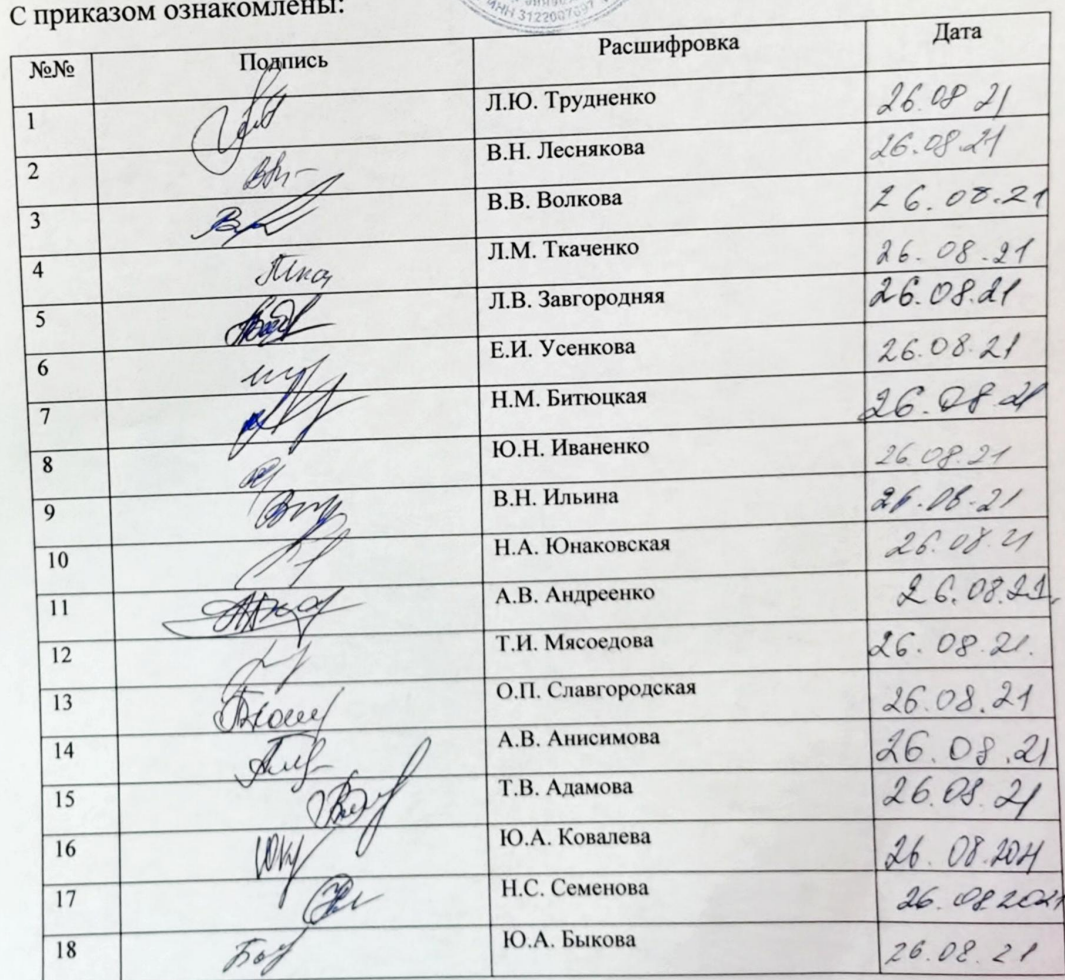 С приказом ознакомлены:
ИНН 3122007697
№№ Подпись Расшифровка Дата
1 Л.Ю. Трудненко 26.08 21
2 В.Н. Леснякова 26.08.21
3 В.В. Волкова 26.08.21
4 Л.М. Ткаченко 26.08.21
5 Л.В. Завгородняя 26.08.21
6 Е.И. Усенкова 26.08.21
7 Н.М. Битюцкая 26.08.21
8 Ю.Н. Иваненко 26.08.21
9 В.Н. Ильина 26.08.21
10 Н.А. Юнаковская 26.08.21
11 А.В. Андреенко 26.08.21.
12 Т.И. Мясоедова 26.08.21.
13 О.П. Славгородская 26.08.21
14 А.В. Анисимова 26.08.21
15 Т.В. Адамова 26.08.21
16 Ю.А. Ковалева 26.08.2021
17 Н.С. Семенова 26.08.2021
18 Ю.А. Быкова 26.08.21